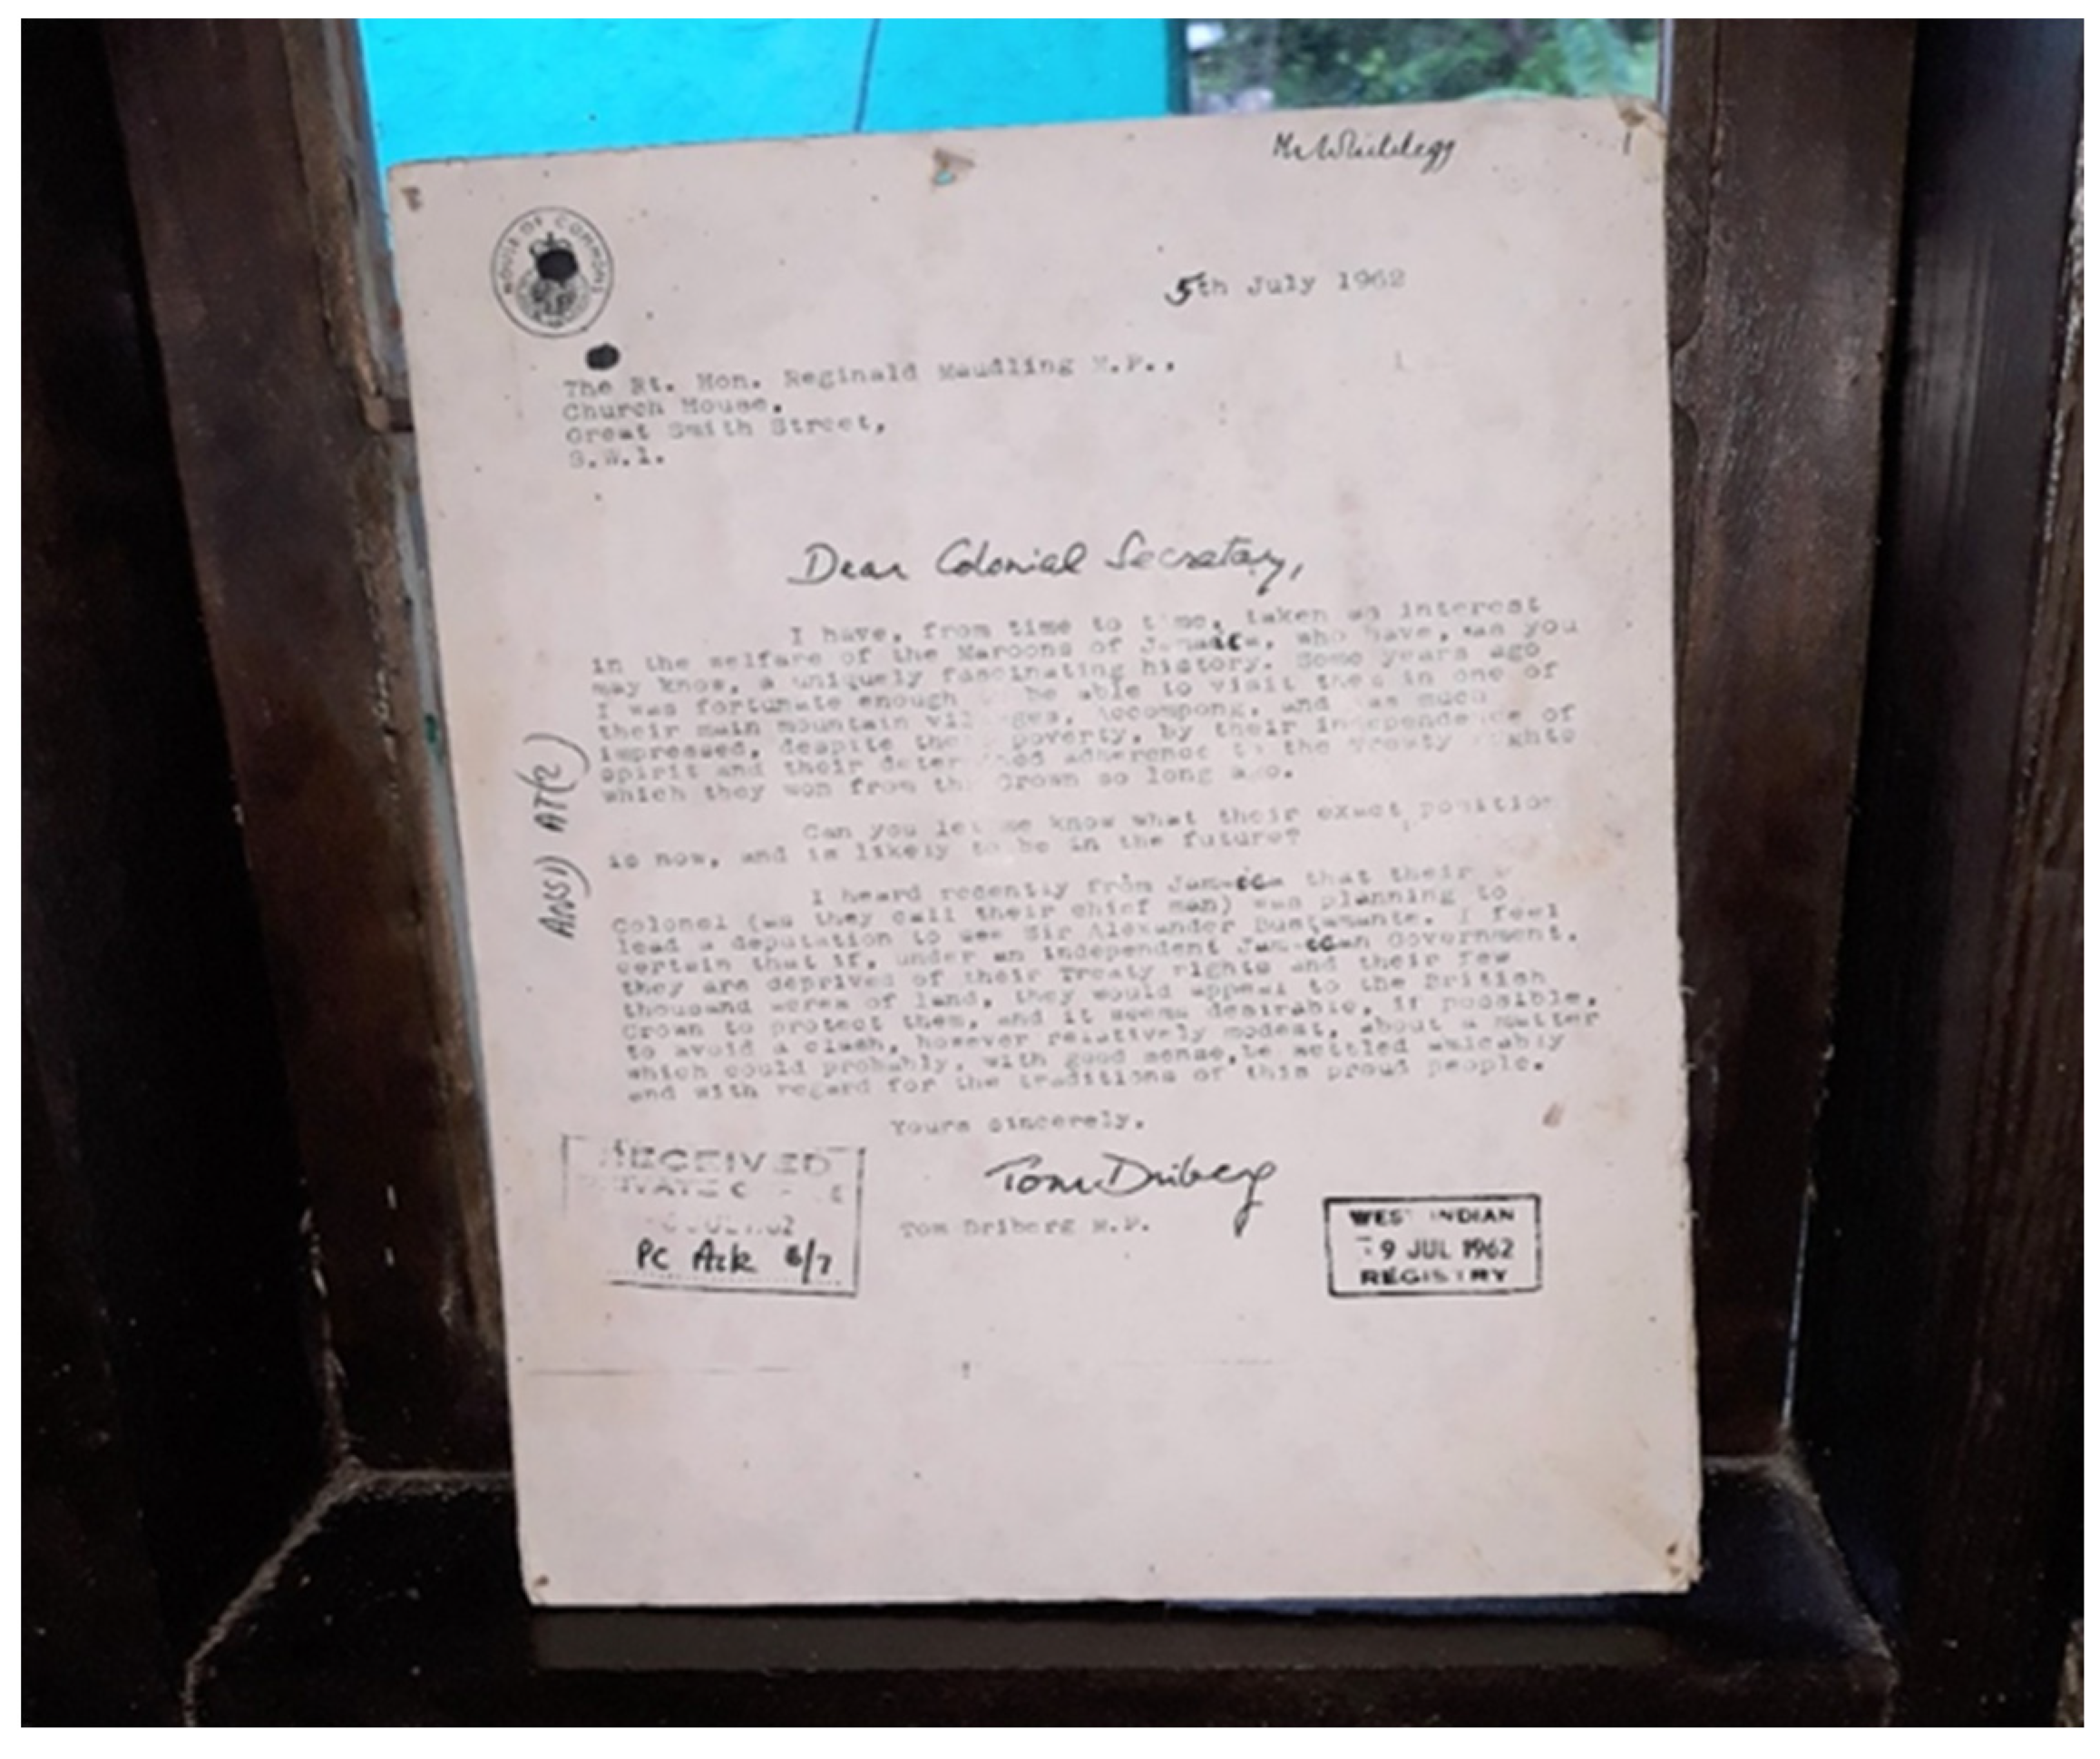 HOUSE OF COMMONS
5th July 1962
The Rt. Hon. Reginald Maudling M.P.,
Church House,
Great Smith Street,
S.W.1.
Dear Colonial Secretary,
I have, from time to time, taken an interest
in the welfare of the Maroons of Jamaica, who have, as you
may know, a uniquely fascinating history. Some years ago
I was fortunate enough be able to visit them in one of
their main mountain villages, Accompong, and was much
impressed, despite their poverty, by their independence of
spirit and their determined adherence to the Treaty rights
which they won from the Crown so long ago.
Can you let me know what their exact position
is now, and is likely to be in the future?
I heard recently from Jamaica that their
Colonel (as they call their chief man) was planning to
lead a deputation to see Sir Alexander Bustamante. I feel
certain that if, under an independent Jamaican Government,
they are deprived of their Treaty rights and their few
thousand acres of land, they would appeal to the British
Crown to protect them, and it seems desirable, if possible,
to avoid a clash, however relatively modest, about a matter
which could probably, with good sense, be settled amicably
and with regard for the traditions of this proud people.
Yours sincerely,
Tom Driberg
Tom Driberg M.P.
RECEIVED
PC Ack 6/7
WEST INDIAN
9 JUL 1962
REGISTRY